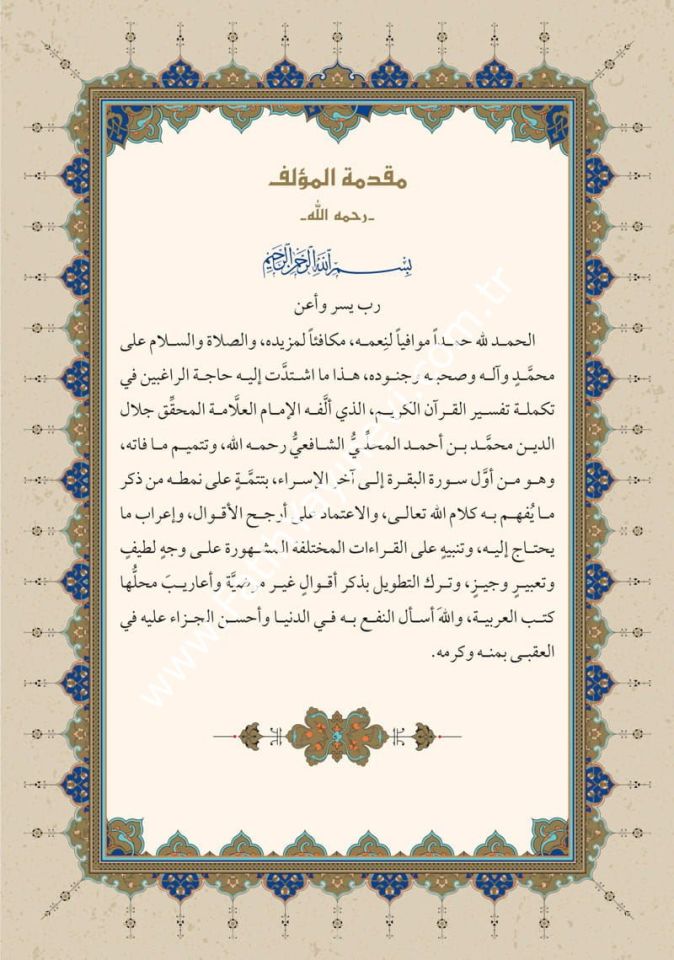 مقدمة المؤلف
-رحمه الله-
بسم الله الرحمن الرحيم
رب يسر وأعن
الحمد لله حمداً موافياً لنِعمه، مكافئاً لمزيده، والصلاة والسلام على
محمَّدٍ وآله وصحبه وجنوده، هذا ما اشتدَّت إليه حاجة الراغبين في
تكملة تفسير القرآن الكريم، الذي ألَّفه الإمام العلَّامة المحقِّق جلال
الدين محمَّد بن أحمد المحلِّيُّ الشافعيُّ رحمه الله، وتتميم ما فاته،
وهو من أوَّل سورة البقرة إلى آخر الإسراء، بتتمَّةٍ على نمطه من ذكر
ما يُفهم به كلام الله تعالى، والاعتماد على أرجح الأقوال، وإعراب ما
يحتاج إليه، وتنبيهٍ على القراءات المختلفة المشهورة على وجهٍ لطيفٍ
وتعبيرٍ وجيزٍ، وترك التطويل بذكر أقوالٍ غير مرضيَّة وأعاريبَ محلُّها
كتب العربية، واللهَ أسأل النفع به في الدنيا وأحسن الجزاء عليه في
العقبى بمنه وكرمه.